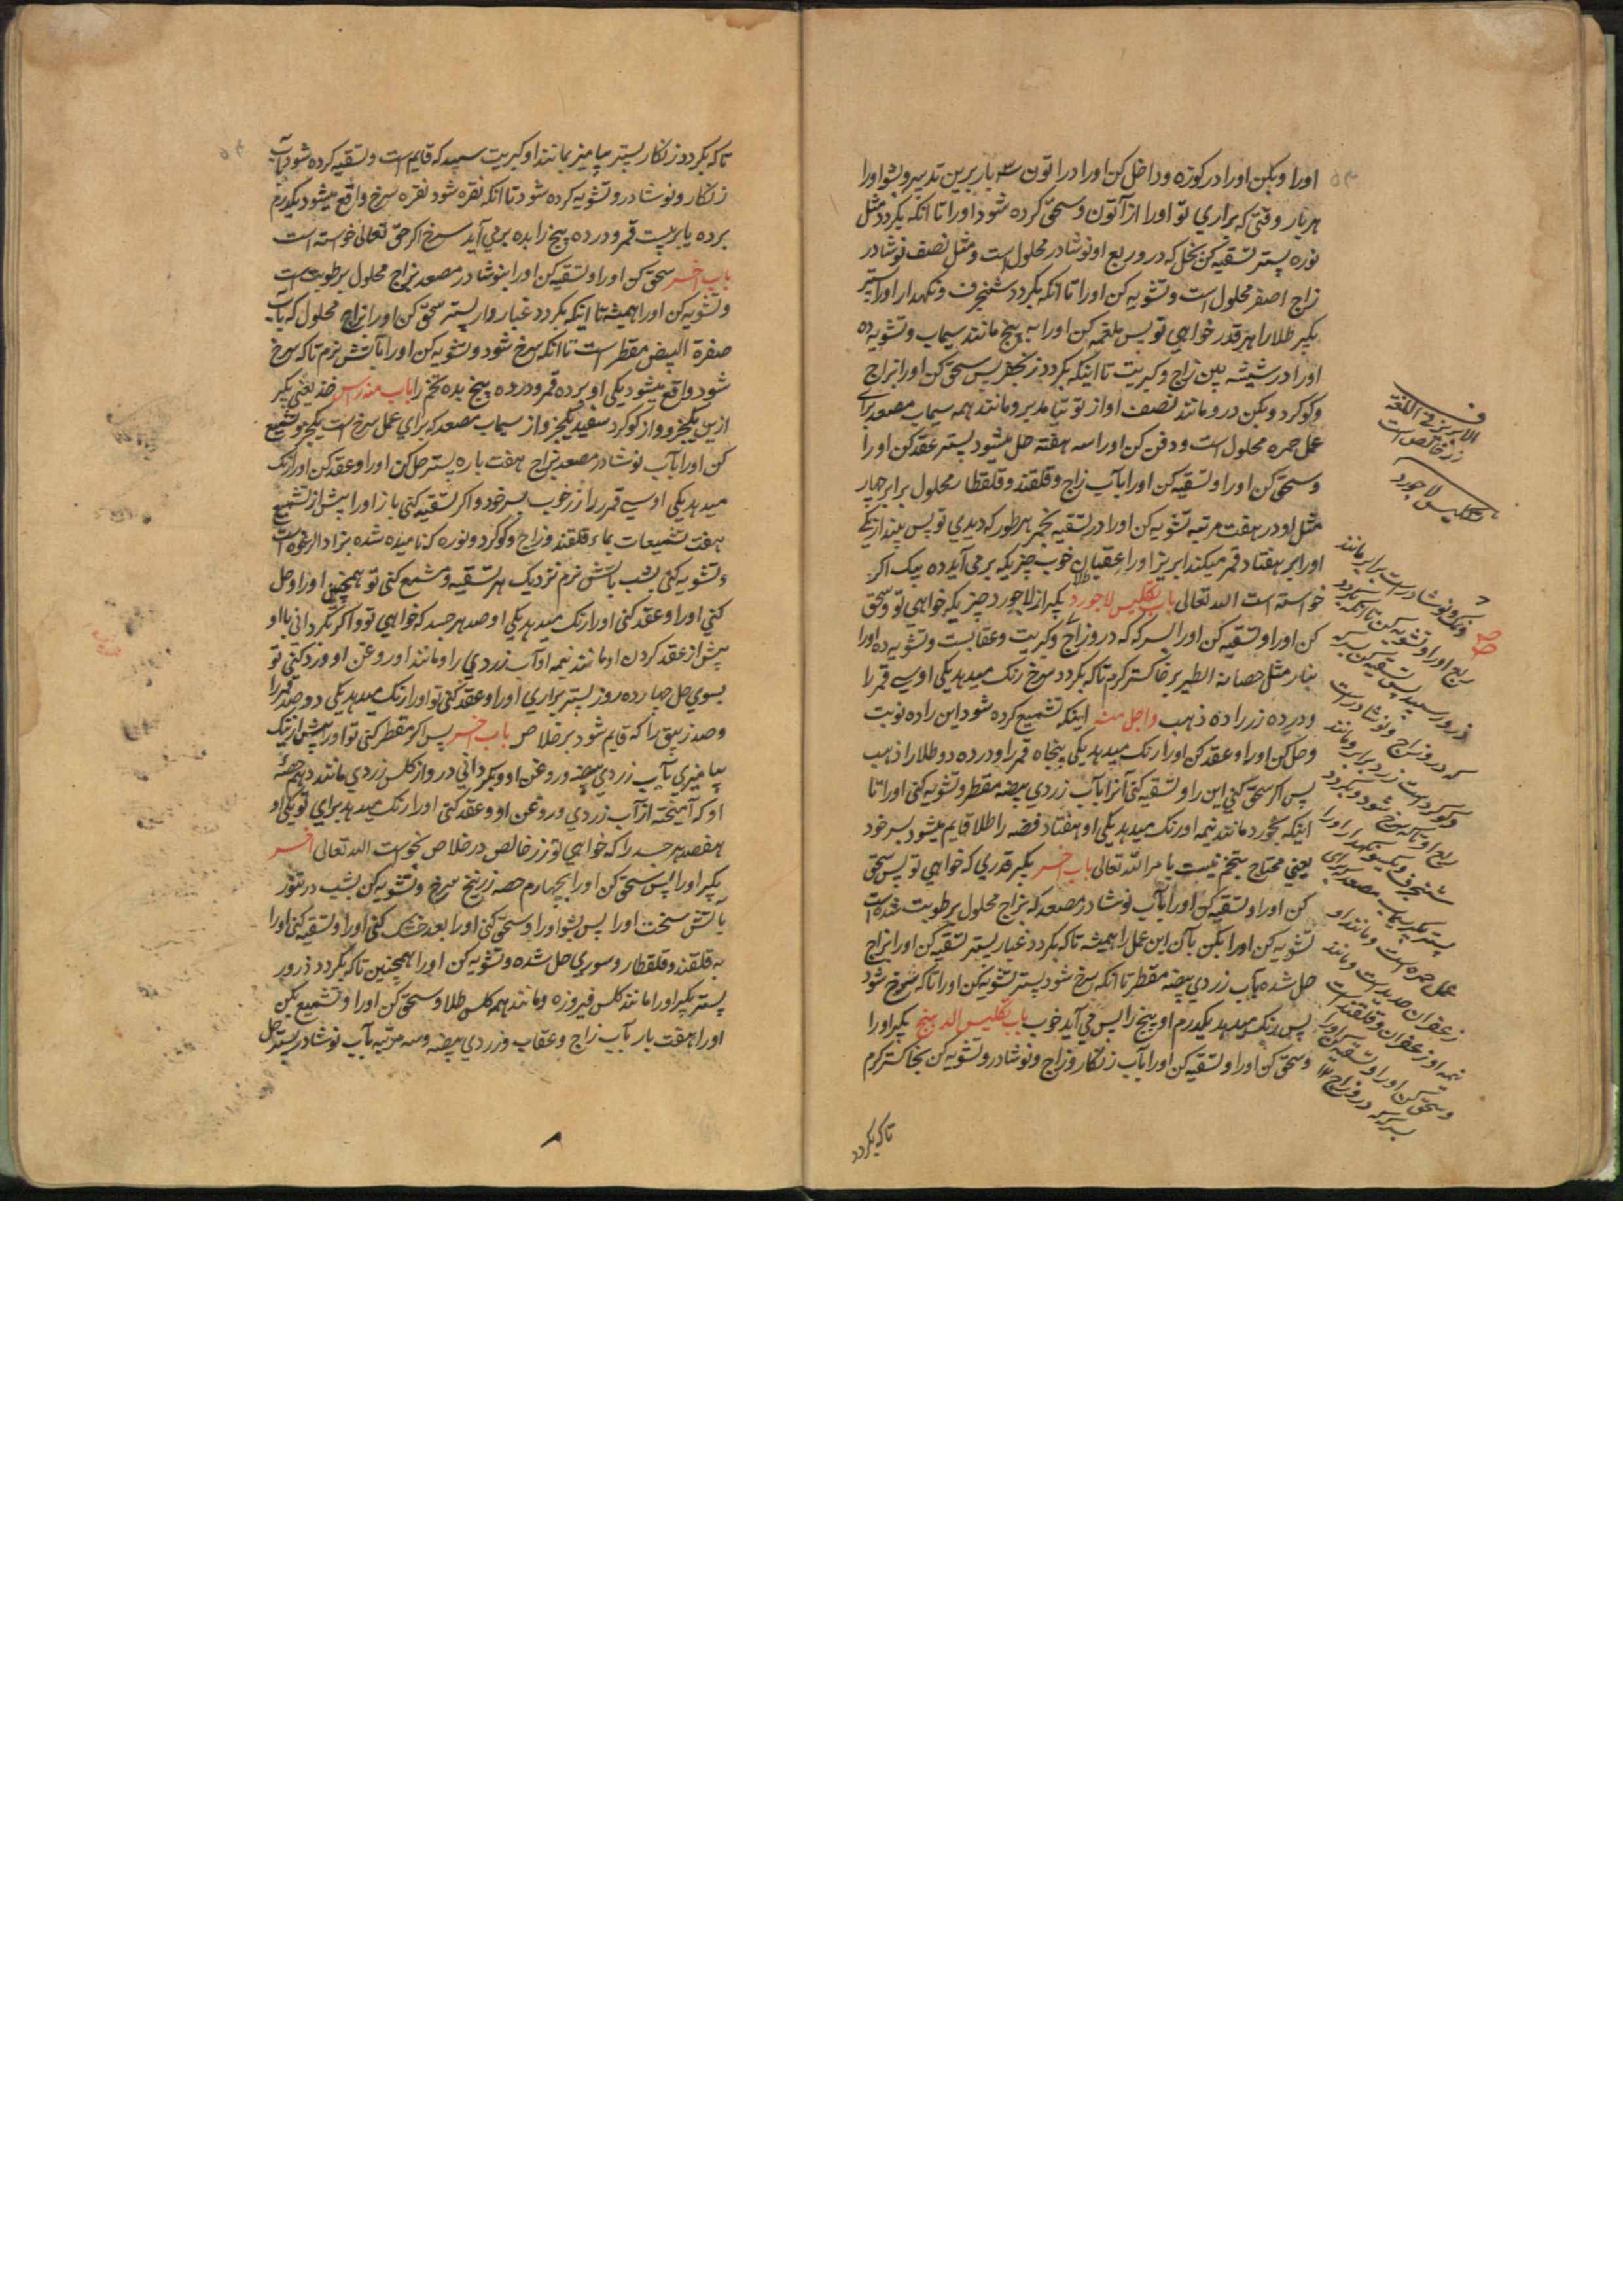 اورا وبکن اورا در کوزه وداخل کن اورا در اتون سه بار برین تدبیر وبشو اورا
هر بار وقتی که براری تو اورا از آتون وسحق کرده شود اورا تا انکه بکردد مثل
نوره پستر تسقیه کن بخل که در و ربع او نوشادر محلول است ومثل نصف نوشادر
زاج اصفر محلول است وتشویه کن اورا تا انکه بکردد شنجرف ونکهدار اورا پستر
بکیر طلا را هر قدر خواهی تو پس ملغمه کن اورا به پنج مانند سیماب وتشویه ده
اورا در شیشه بین زاج وکبریت تا اینکه بکردد زنجفر پس سحق کن اورا بزاج
وکوکرد وبکن درو مانند نصف او از توتیا مدبر ومانند همه سیماب مصعد برای
عمل حمره محلول است ودفن کن اورا سه هفته حل میشود پستر عقد کن اورا
وسحق کن اورا وتسقیه کن اورا بآب زاج وقلقند وقلقطار محلول برابر چهار
مثل او در هفت مرتبه تشویه کن اورا در تسقیه بخمر هر طور که دیدی تو پس بینداز یکی
اورا بر هفتاد قمر میکند ابریز اورا عقیان خوب چیزیکه بر می آید ده بیک اکر
خواسته است الله تعالی باب تکلیس لاجورد بکیر از لاجورد چیزیکه خواهی تو وسحق
کن اورا وتسقیه کن اورا بسرکه که درو زاج وکبریت وعقابست وتشویه ده اورا
بنار مثل حصانة الطیر بر خاکستر کرم تا که بکردد سرخ رنک میدهد یکی اوسی قمر را
ودرده زر را ده ذهب واجل منه اینکه تشمیع کرده شود این را ده نوبت
وحل کن اورا وعقد کن اورا رنک میدهد یکی پنجاه قمر را ودرده دو طلا را ذهب
پس اکر سحق کنی این را وتسقیه کنی آنرا بآب زردی بیضه مقطر وتشویه کنی اورا تا
اینکه بخورد مانند نیمه اورنک میدهد یکی او هفتاد فضه را طلا قایم میشود بسر خود
یعنی محتاج بتخم نیست بامر الله تعالی باب اخر بکیر قدری که خواهی تو پس سحق
کن اورا وتسقیه کن اورا بآب نوشادر مصعد که بزاج محلول برطوبت شده است
تشویه کن اورا بکن بآن این عمل را همیشه تا که بکردد غبار پستر تسقیه کن اورا بزاج
حل شده بآب زردی بیضه مقطر تا انکه سرخ شود پستر تشویه کن اورا تا که سرخ شود
پس رنک میدهد یکدرم او پنج را پس می آید خوب باب تکلیس الدهنج بکیر اورا
وسحق کن اورا وتسقیه کن اورا بآب زنکار وزاج ونوشادر وتشویه کن بخاکستر کرم
تا که بکردد
ف
الابریز فی اللغة
زر خالص است
تکلیس لاجورد
ونمک ونوشادر است برابر مانند
ربع اورا وتشویه کن تا انکه بکردد
ذرور سپید پس تسقیه کن بسرکه
که درو زاج ونوشادر است
وکوکرد است زرد برابر ومانند
ربع او تا که سرخ شود وبکردد
شنجرف ونیکو نکهدار اورا
پستر بکیر سیماب مصعد برای
عمل حمره است ومانند او
زعفران حدید است ومانند
نیمه او زعفران وقلقند است
وسحق کن اورا وتسقیه کن اورا
بسرکه که درو زاج
تا که بکردد زنکار پستر بیامیز بمانند او کبریت سپید که قایم است وتسقیه کرده شود بآب
زنکار ونوشادر وتشویه کرده شود تا انکه نقره شود نقره سرخ واقع میشود یکدرم
برده یا بر بیست قمر ودرده پنج را بده برمی آید سرخ اکر حق تعالی خواسته است
باب اخر سحق کن اورا وتسقیه کن اورا بنوشادر مصعد بزاج محلول برطوبت است
وتشویه کن اورا همیشه تا اینکه بکردد غبار وار پستر سحق کن اورا بزاج محلول که بآب
صفرة البیض مقطر است تا انکه سرخ شود وتشویه کن اورا بآتش نرم تا که سرخ
شود واقع میشود یکی او برده قمر ودرده پنج بده تخم را باب منه راس خذ یعنی بکیر
ازین یکجز وواز کوکرد سفید یکجز واز سیماب مصعد که برای عمل سرخ است یکجز وتشمیع
کن اورا بآب نوشادر مصعد بزاج هفت باره پستر حل کن اورا وعقد کن اورا رنک
میدهد یکی اوسی قمر را زر خوب بسر خود واکر تسقیه کنی باز اورا پیش از تشمیع
هفت تشمیعات بماء قلقند وزاج وکوکرد ونوره که نامیده شده بزاد الرغوه است
وتشویه کنی بشب بآتش نرم نزدیک هر تسقیه ومشمع کنی تو همچنین اورا وحل
کنی اورا وعقد کنی اورا رنک میدهد یکی او صد هر جسد که خواهی تو واکر بکردانی با او
پیش از عقد کردن او مانند نیمه او آب زردی را ومانند او روغن او ورد کنی تو
بسوی حل چهارده روز پستر براری اورا وعقد کنی تو اورا رنک میدهد یکی دو صد قمر را
وصد زیبق را که قایم شود برخلاص باب اخر پس اکر مقطر کنی تو اورا پیش از رنک
بیامیزی بآب زردی بیضه وروغن او وبکردانی درو از کلس زردی مانند دهم حصهٔ
او که آمیخته از آب زردی وروغن او وعقد کنی اورا رنک میدهد برای تو یکی او
هفصد هر جسد را که خواهی تو زر خالص در خلاص بخواست الله تعالی اخر
بکیر اورا پس سحق کن اورا بچهارم حصه زرنیخ سرخ وتشویه کن بشب در تنور
بآتش سخت اورا پس بشو اورا وسحق کنی اورا بعد خشک کنی اورا وتسقیه کنی اورا
به قلقند وقلقطار وسوری حل شده وتشویه کن اورا همچنین تا که بکردد ذرور
پستر بکیر اورا مانند کلس فیروزه ومانند همه کلس طلا وسحق کن اورا وتشمیع بکن
اورا هفت بار بآب زاج وعقاب وزردی بیضه وسه مرتبه بآب نوشادر پستر حل